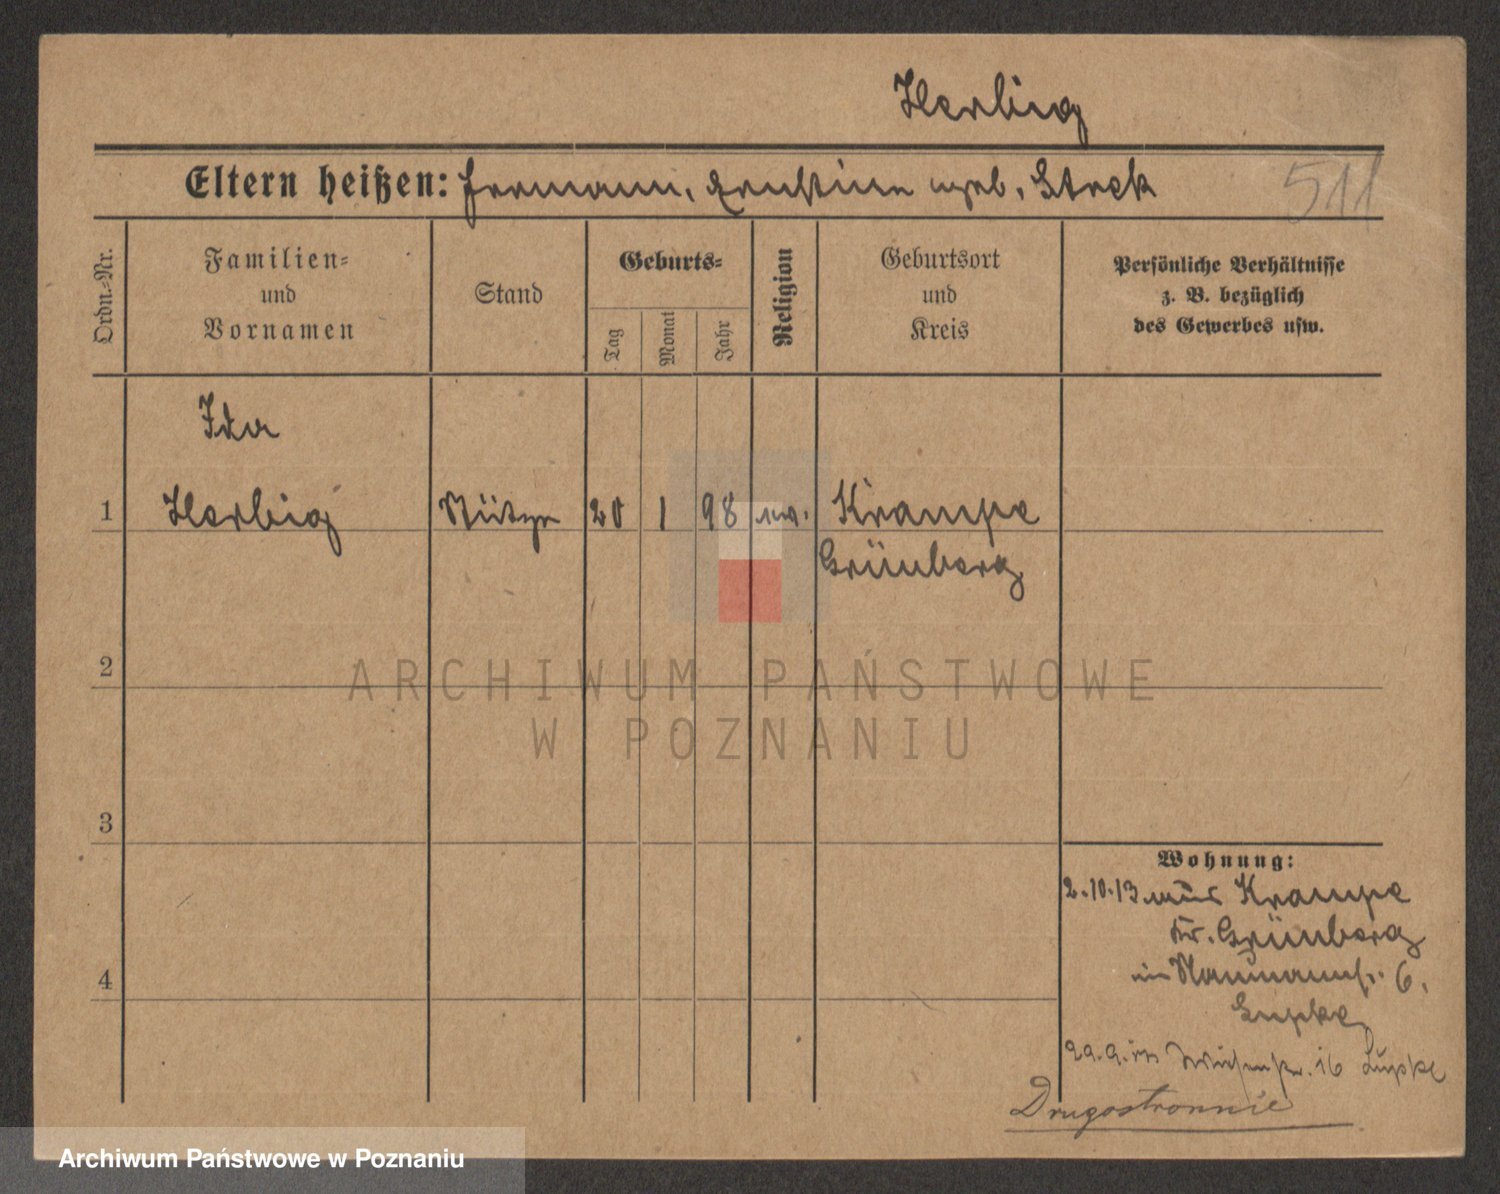 Herbig
Eltern heißen: Hermann, Ernstine geb. Steck
511
Ordn.-Nr.
Familien-
und
Vornamen
Stand
Geburts-
Tag
Monat
Jahr
Religion
Geburtsort
und
Kreis
Persönliche Verhältnisse
z. B. bezüglich
des Gewerbes usw.
Ida
1 Herbig Stütze 20 1 98 ev. Krampe
Grünberg
2
3
4
Wohnung:
2.10.13 aus Krampe
Kr. Grünberg
in Naumannstr. 6.
Lupke
29.9. in Wiesenstr. 16 Lupke
Drugostronnie
ARCHIWUM PAŃSTWOWE
W POZNANIU
Archiwum Państwowe w Poznaniu